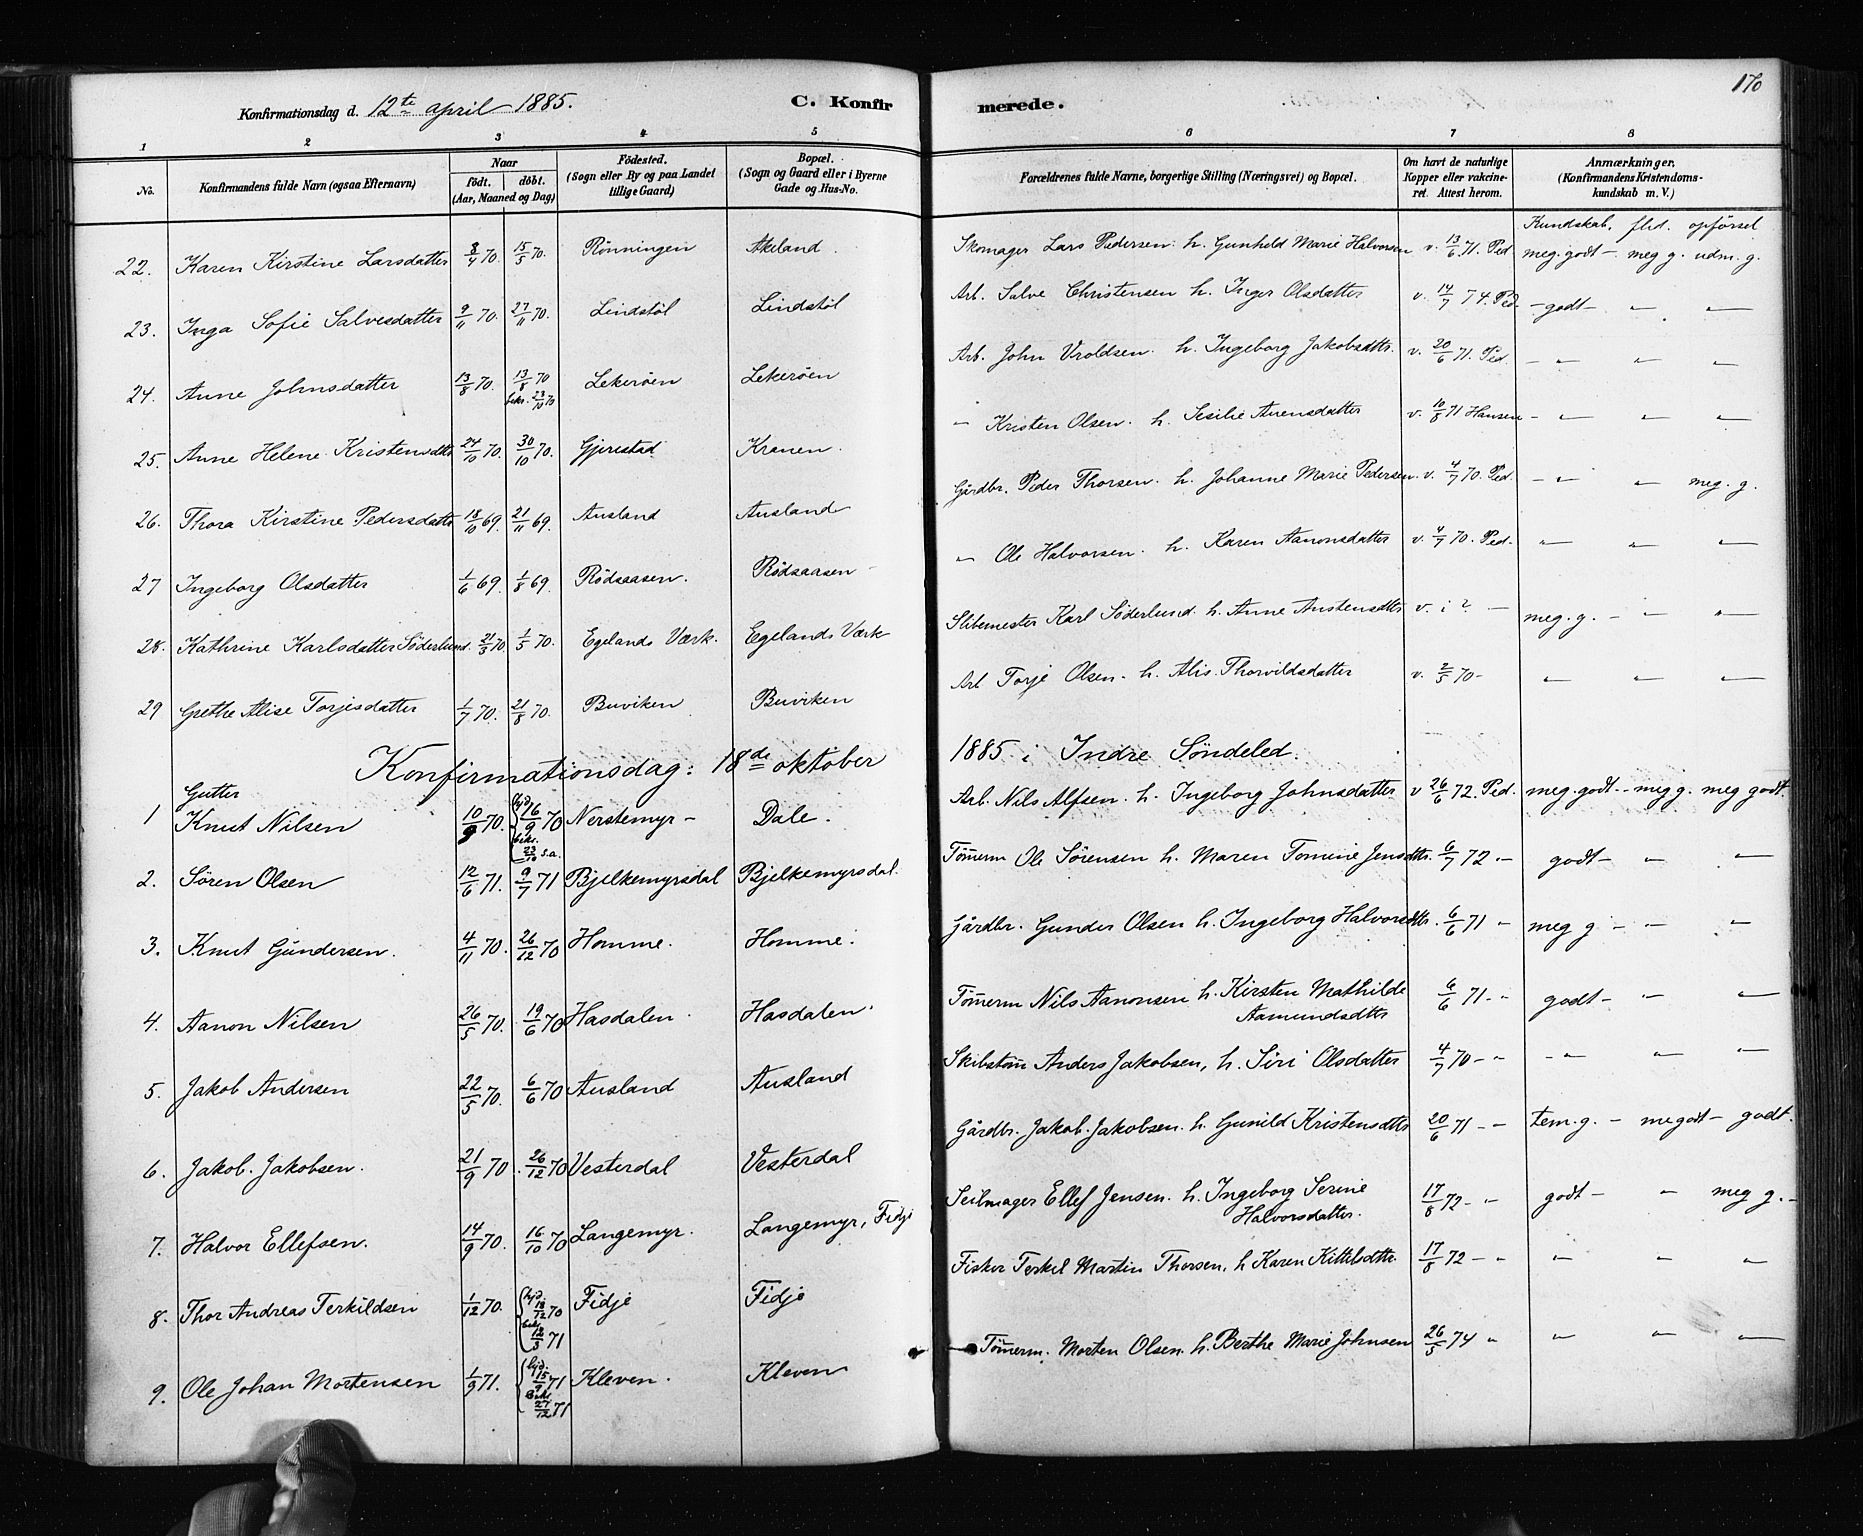 170
Konfirmationsdag d. 12te april 1885. C. Konfirmerede.
1 2 3 4 5 6 7 8
No. Konfirmandens fulde Navn (ogsaa Efternavn) Naar født. døbt. (Aar, Maaned og Dag) Fødested. (Sogn eller By og paa Landet tillige Gaard) Bopæl. (Sogn og Gaard eller i Byerne Gade og Hus-No. Forældrenes fulde Navne, borgerlige Stilling (Næringsvei) og Bopæl. Om havt de naturlige Kopper eller vakcineret. Attest herom. Anmærkninger. (Konfirmandens Kristendomskundskab m. V.)
Kundskab, flid. opførsel
22. Karen Kirstine Larsdatter 8/4 70. 15/5 70. Rønningen Akeland. Skomager Lars Pedersen. h. Gunhild Marie Halvorsen v. 13/6 71. Ped meg. godt – meg g. udm. g.
23. Inga Sofie Salvesdatter 9/11 70. 27/11 70. Lindstøl Lindstøl Arb. Salve Christensen h. Inger Olsdatter v. 14/7 74. Ped. – godt – " "
24. Anne Johnsdatter 13/8 70. 13/8 70 bekr. 23/10 70 Lekerøen Lekerøen Arb. John Vroldsen. h. Ingeborg Jakobsdttr. v. 20/6 71. Ped. – " " "
25. Anne Helene Kristensdttr 24/10 70. 30/10 70. Gjerestad Kranen. " Kristen Olsen. h. Sesilie Anensdatter v. 10/8 71 Hansen – " " "
26. Thora Kirstine Pedersdattr 18/10 69. 21/11 69. Ausland Ausland Gårdbr. Peder Thorsen. h. Johanne Marie Pedersen. v. 4/7 70. Ped. – " " meg. g.
27 Ingeborg Olsdatter 1/6 69. 1/8 69. Rødsaasen. Rødsaasen " Ole Halvorsen. h. Karen Aanonsdatter v. 4/7 70. Ped. " " "
28. Kathrine Karlsdatter Söderlund. 21/3 70 1/5 70. Egelands Værk. Egelands Værk Slibemester Karl Söderlund. h. Anne Austensdttr v. i ? – meg. g. – " "
29 Grethe Alise Torjesdatter 1/7 70. 21/8 70. Buviken Buviken Arb Torje Olsen. h. Alis Thorvildsdatter v. 2/5 70 – " " "
Konfirmationsdag: 18de oktober 1885 i Indre Søndeled.
Gutter
1 Knut Nilsen 10/9 70. hjd. 16/9 70 bekr. 23/10 s.a. Nerstemyr – Dale. Arb. Nils Alfsen. h. Ingeborg Johnsdatter v 26/6 72. Ped. meg. godt – meg g. meg godt.
2. Søren Olsen 12/6 71. 9/7 71 Bjelkemyrsdal Bjelkemyrsdal. Tømerm Ole Sørensen h. Maren Tomine Jensdttr. 6/7 72 " godt – " "
3. Knut Gundersen. 4/11 70. 26/12 70 Homme. Homme. Gårdbr. Gunder Olsen h. Ingeborg Halvorsdttr. 6/6 71 " meg g – " "
4. Aanon Nilsen 26/5 70. 19/6 70 Hasdalen. Hasdalen. Tømerm Nils Aanonsen h. Kirsten Mathilde Aamundsdttr 6/6 71 – " godt – " "
5. Jakob Andersen 22/5 70. 6/6 70 Ausland Ausland Skibstøm Anders Jakobsen, h. Siri Olsdatter 4/7 70 – " – " " "
6. Jakob Jakobsen. 21/9 70. 26/12 70 Vesterdal Vesterdal Gårdbr. Jakob Jakobsen. h. Gunild Kristensdttr 20/6 71 – " tem. g. – megodt – godt.
7. Halvor Ellefsen. 14/9 70. 16/10 70 Langemyr. Langemyr, Fidje Seilmager Ellef Jensen. h. Ingeborg Serine Halvorsdatter. 17/8 72 – " godt – " meg g. –
8. Thor Andreas Terkildsen 1/12 70. hjd. 18/12 70 bekr. 12/3 71 Fidje Fidje Fisker Terkel Martin Thorsen, h Karen Kittelsdttr. 17/8 72 – " " " "
9. Ole Johan Mortensen 1/9 71. hjd. 15/9 71 Bekr. 27/12 71 Kleven. Kleven Tømerm. Morten Olsen. h. Berthe Marie Johnsen 26/5 74 " " " "